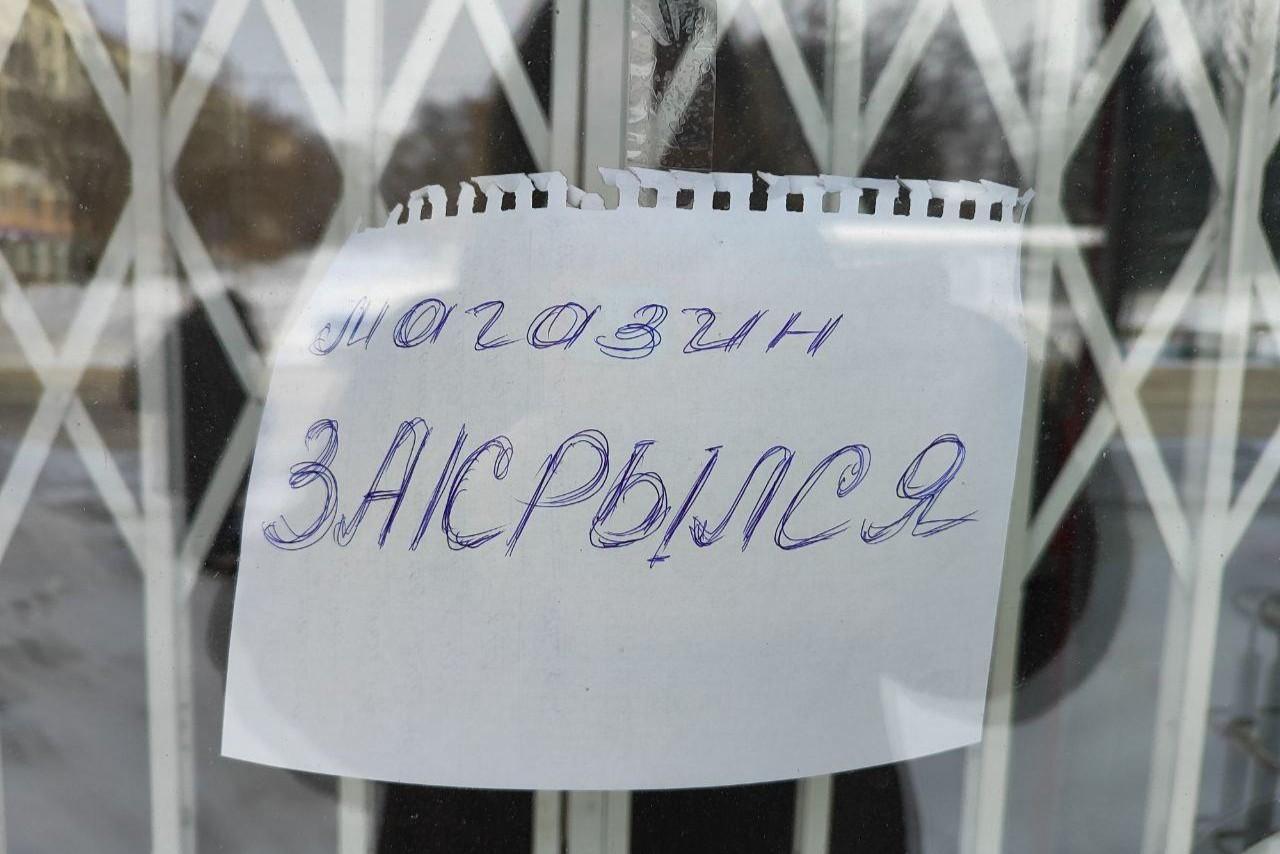 магазин
ЗАКРЫЛСЯ